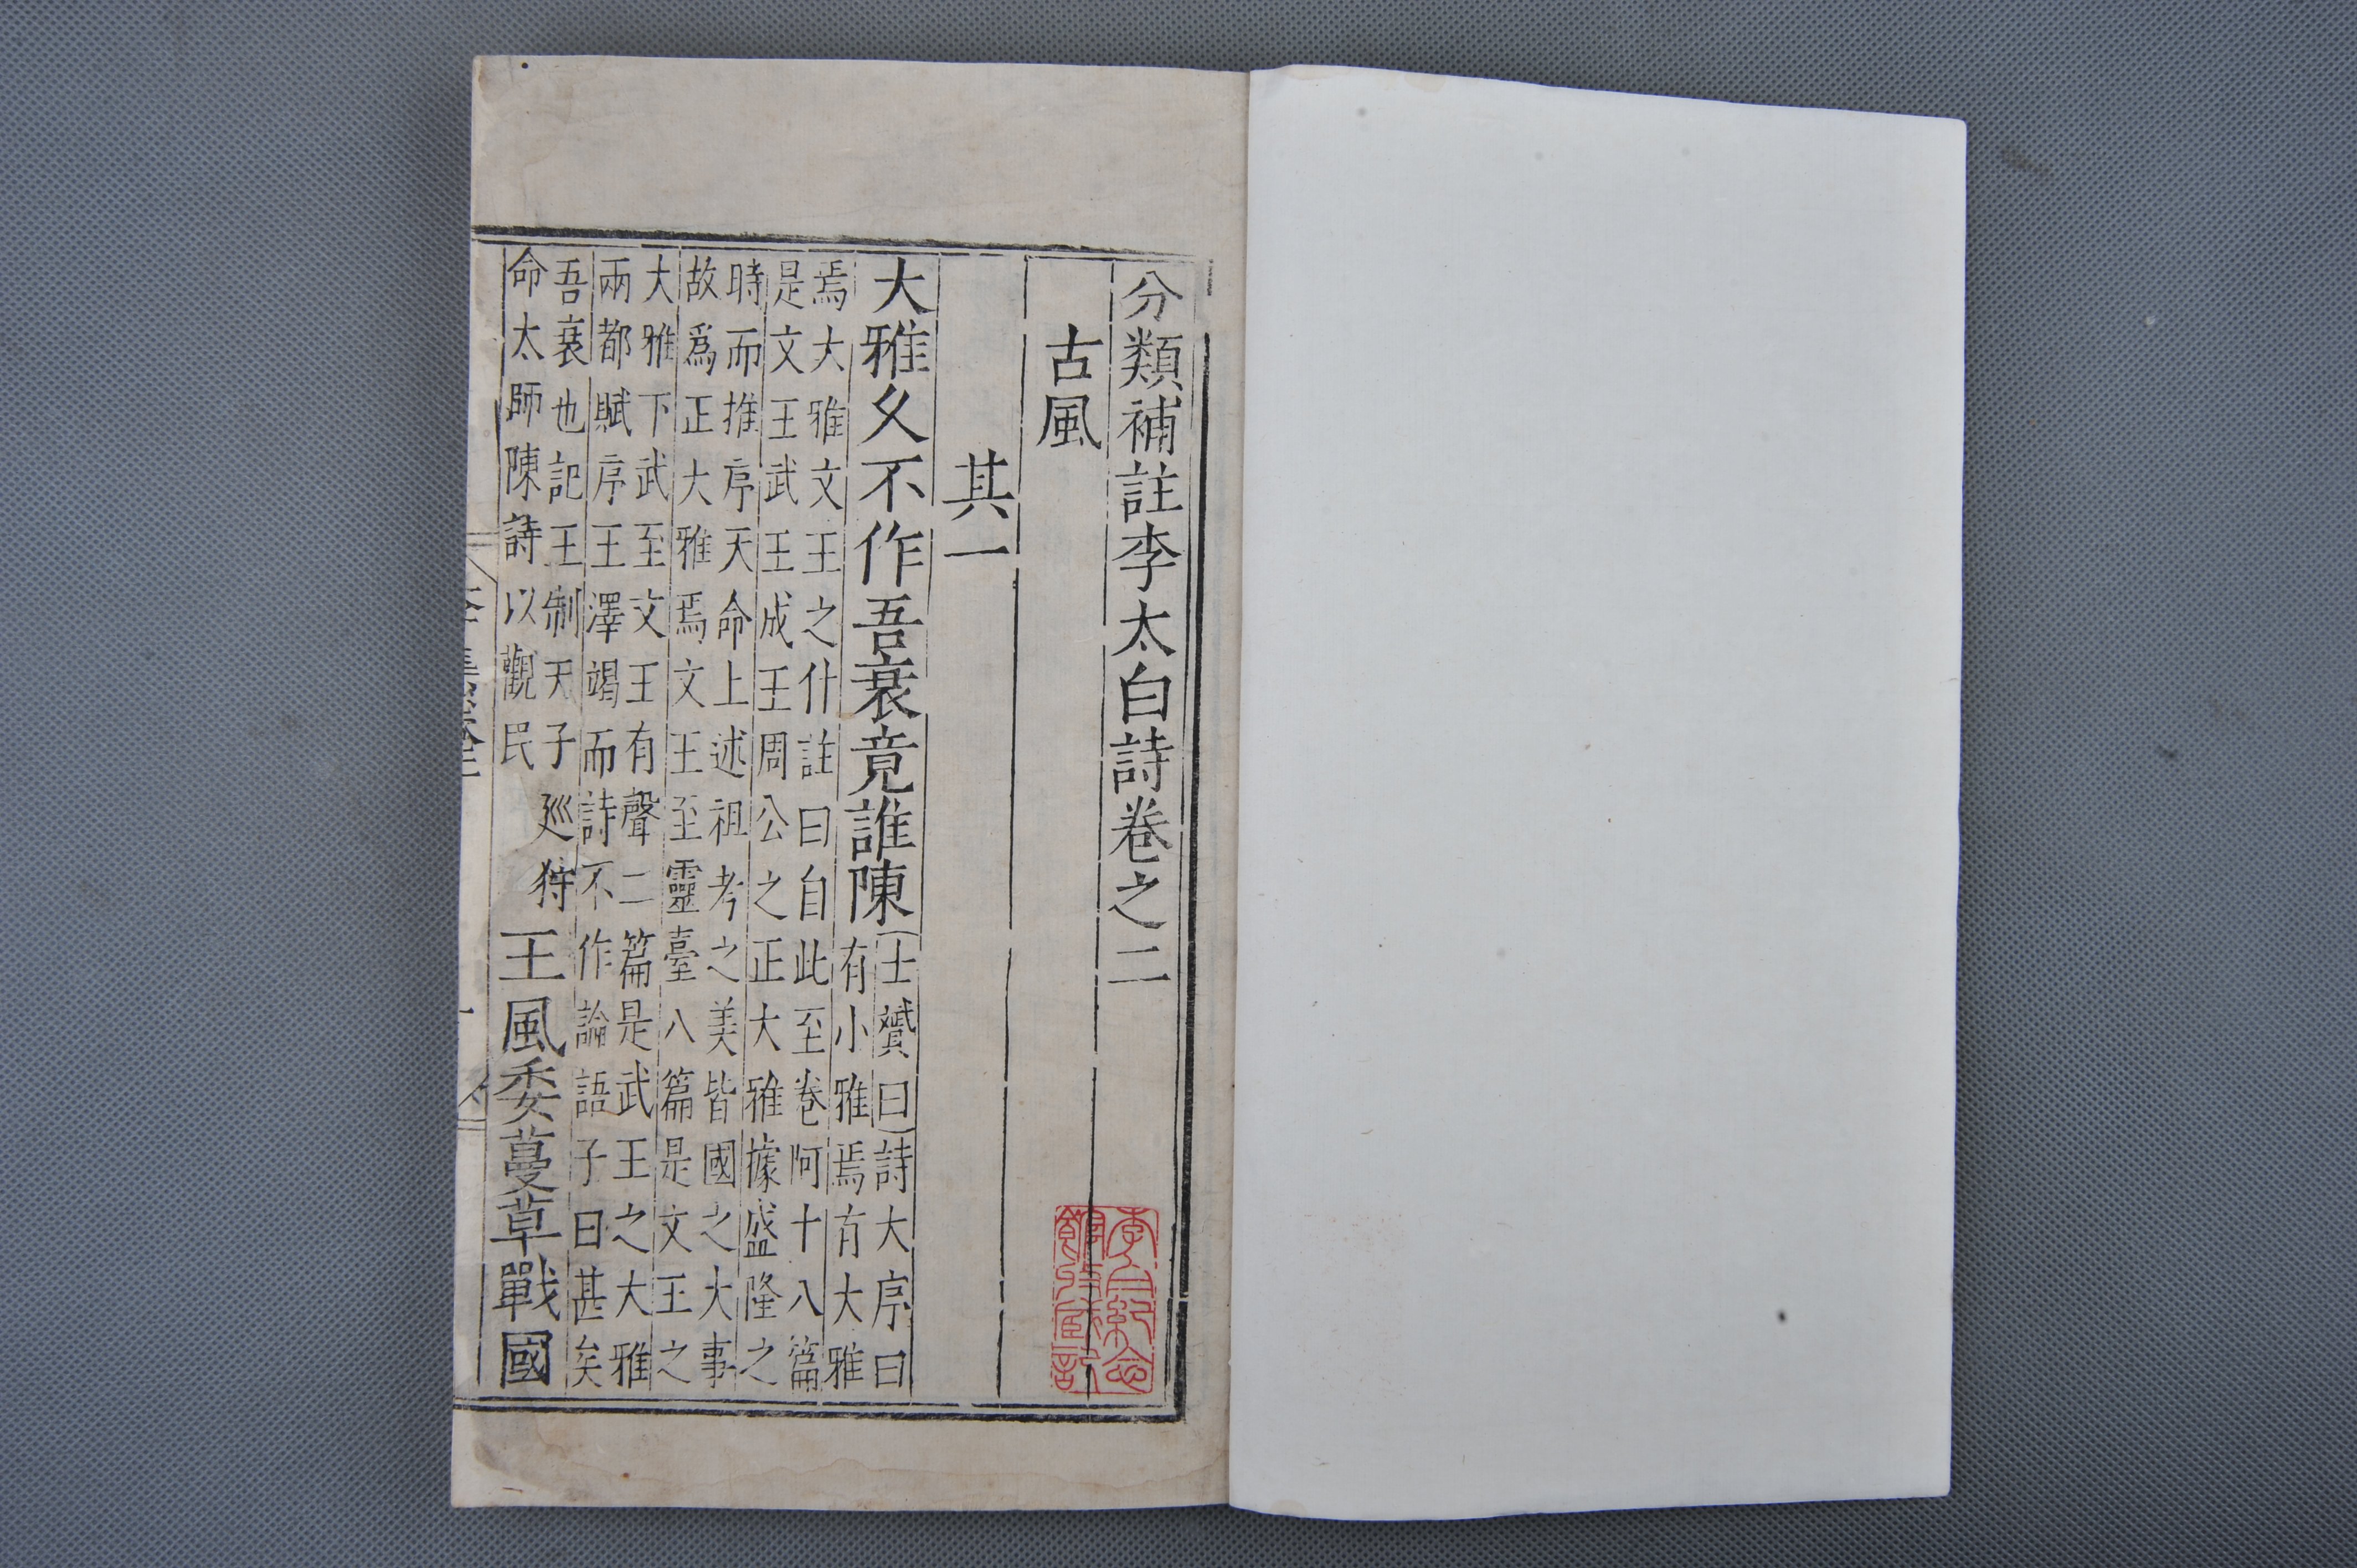 分類補註李太白詩卷之二
古風
其一
大雅久不作吾衰竟誰陳
士贇曰詩大序曰
有小雅焉有大雅
焉大雅文王之什註曰自此至卷阿十八篇
是文王武王成王周公之正大雅據盛隆之
時而推序天命上述祖考之美皆國之大事
故爲正大雅焉文王至靈臺八篇是文王之
大雅下武至文王有聲二篇是武王之大雅
兩都賦序王澤竭而詩不作論語子曰甚矣
吾衰也記王制天子廵狩
命太師陳詩以觀民
王風委蔓草戰國
李白紀念
館收藏記